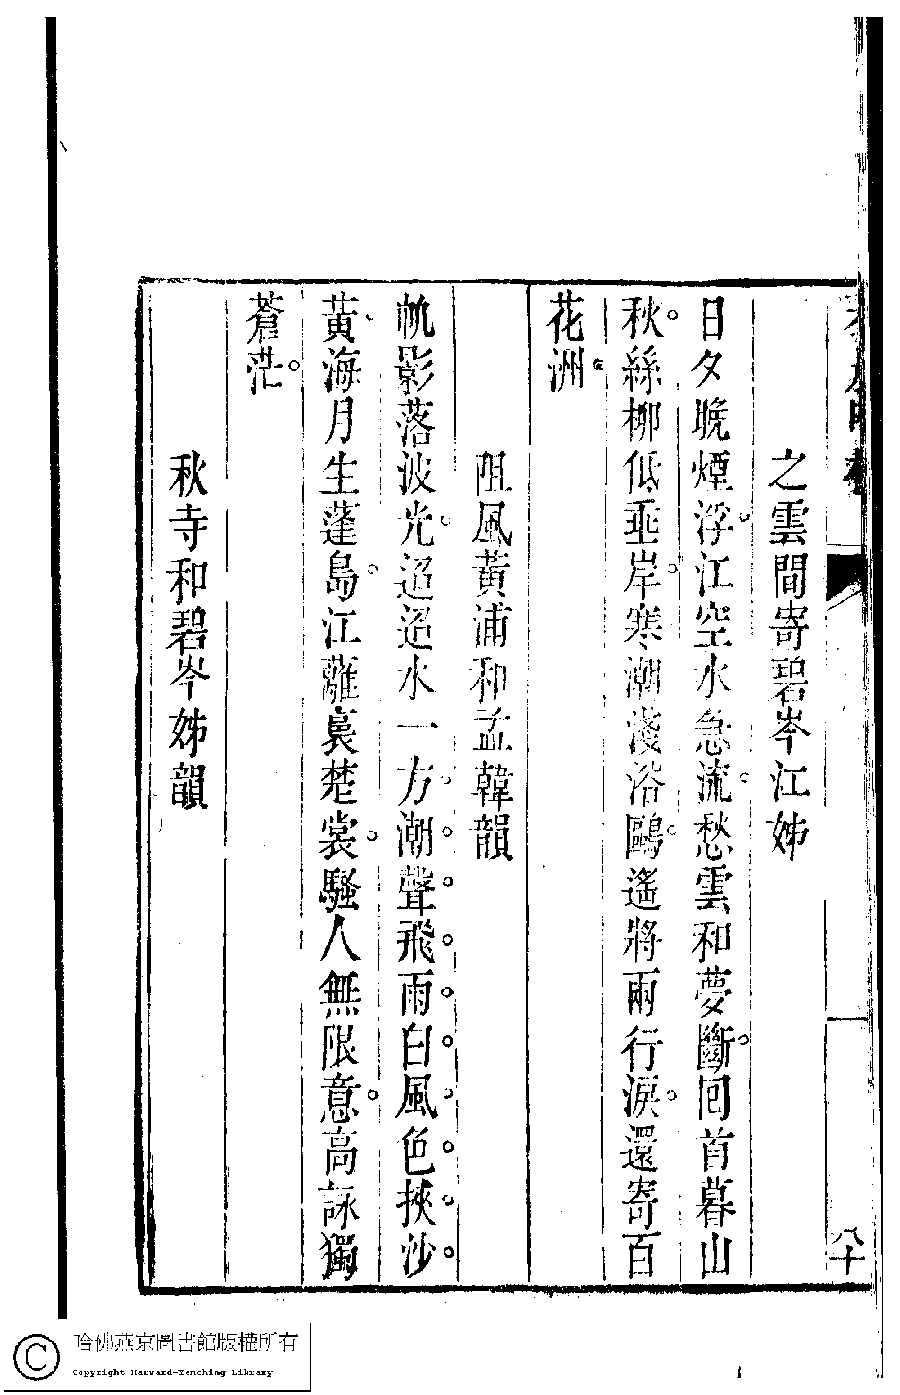 之雲間寄碧岑江姊
日夕晚煙浮江空水急流愁雲和夢斷回首暮山
秋絲柳低垂岸寒潮淺浴鷗遙將兩行淚還寄百
花洲
阻風黃浦和孟韓韻
帆影落波光迢迢水一方潮聲飛雨白風色挾沙
黃海月生蓬島江蘺裛楚裳騷人無限意高詠獨
蒼茫
秋寺和碧岑姊韻
八十
哈佛燕京圖書館版權所有
Copyright Harvard-Yenching Library